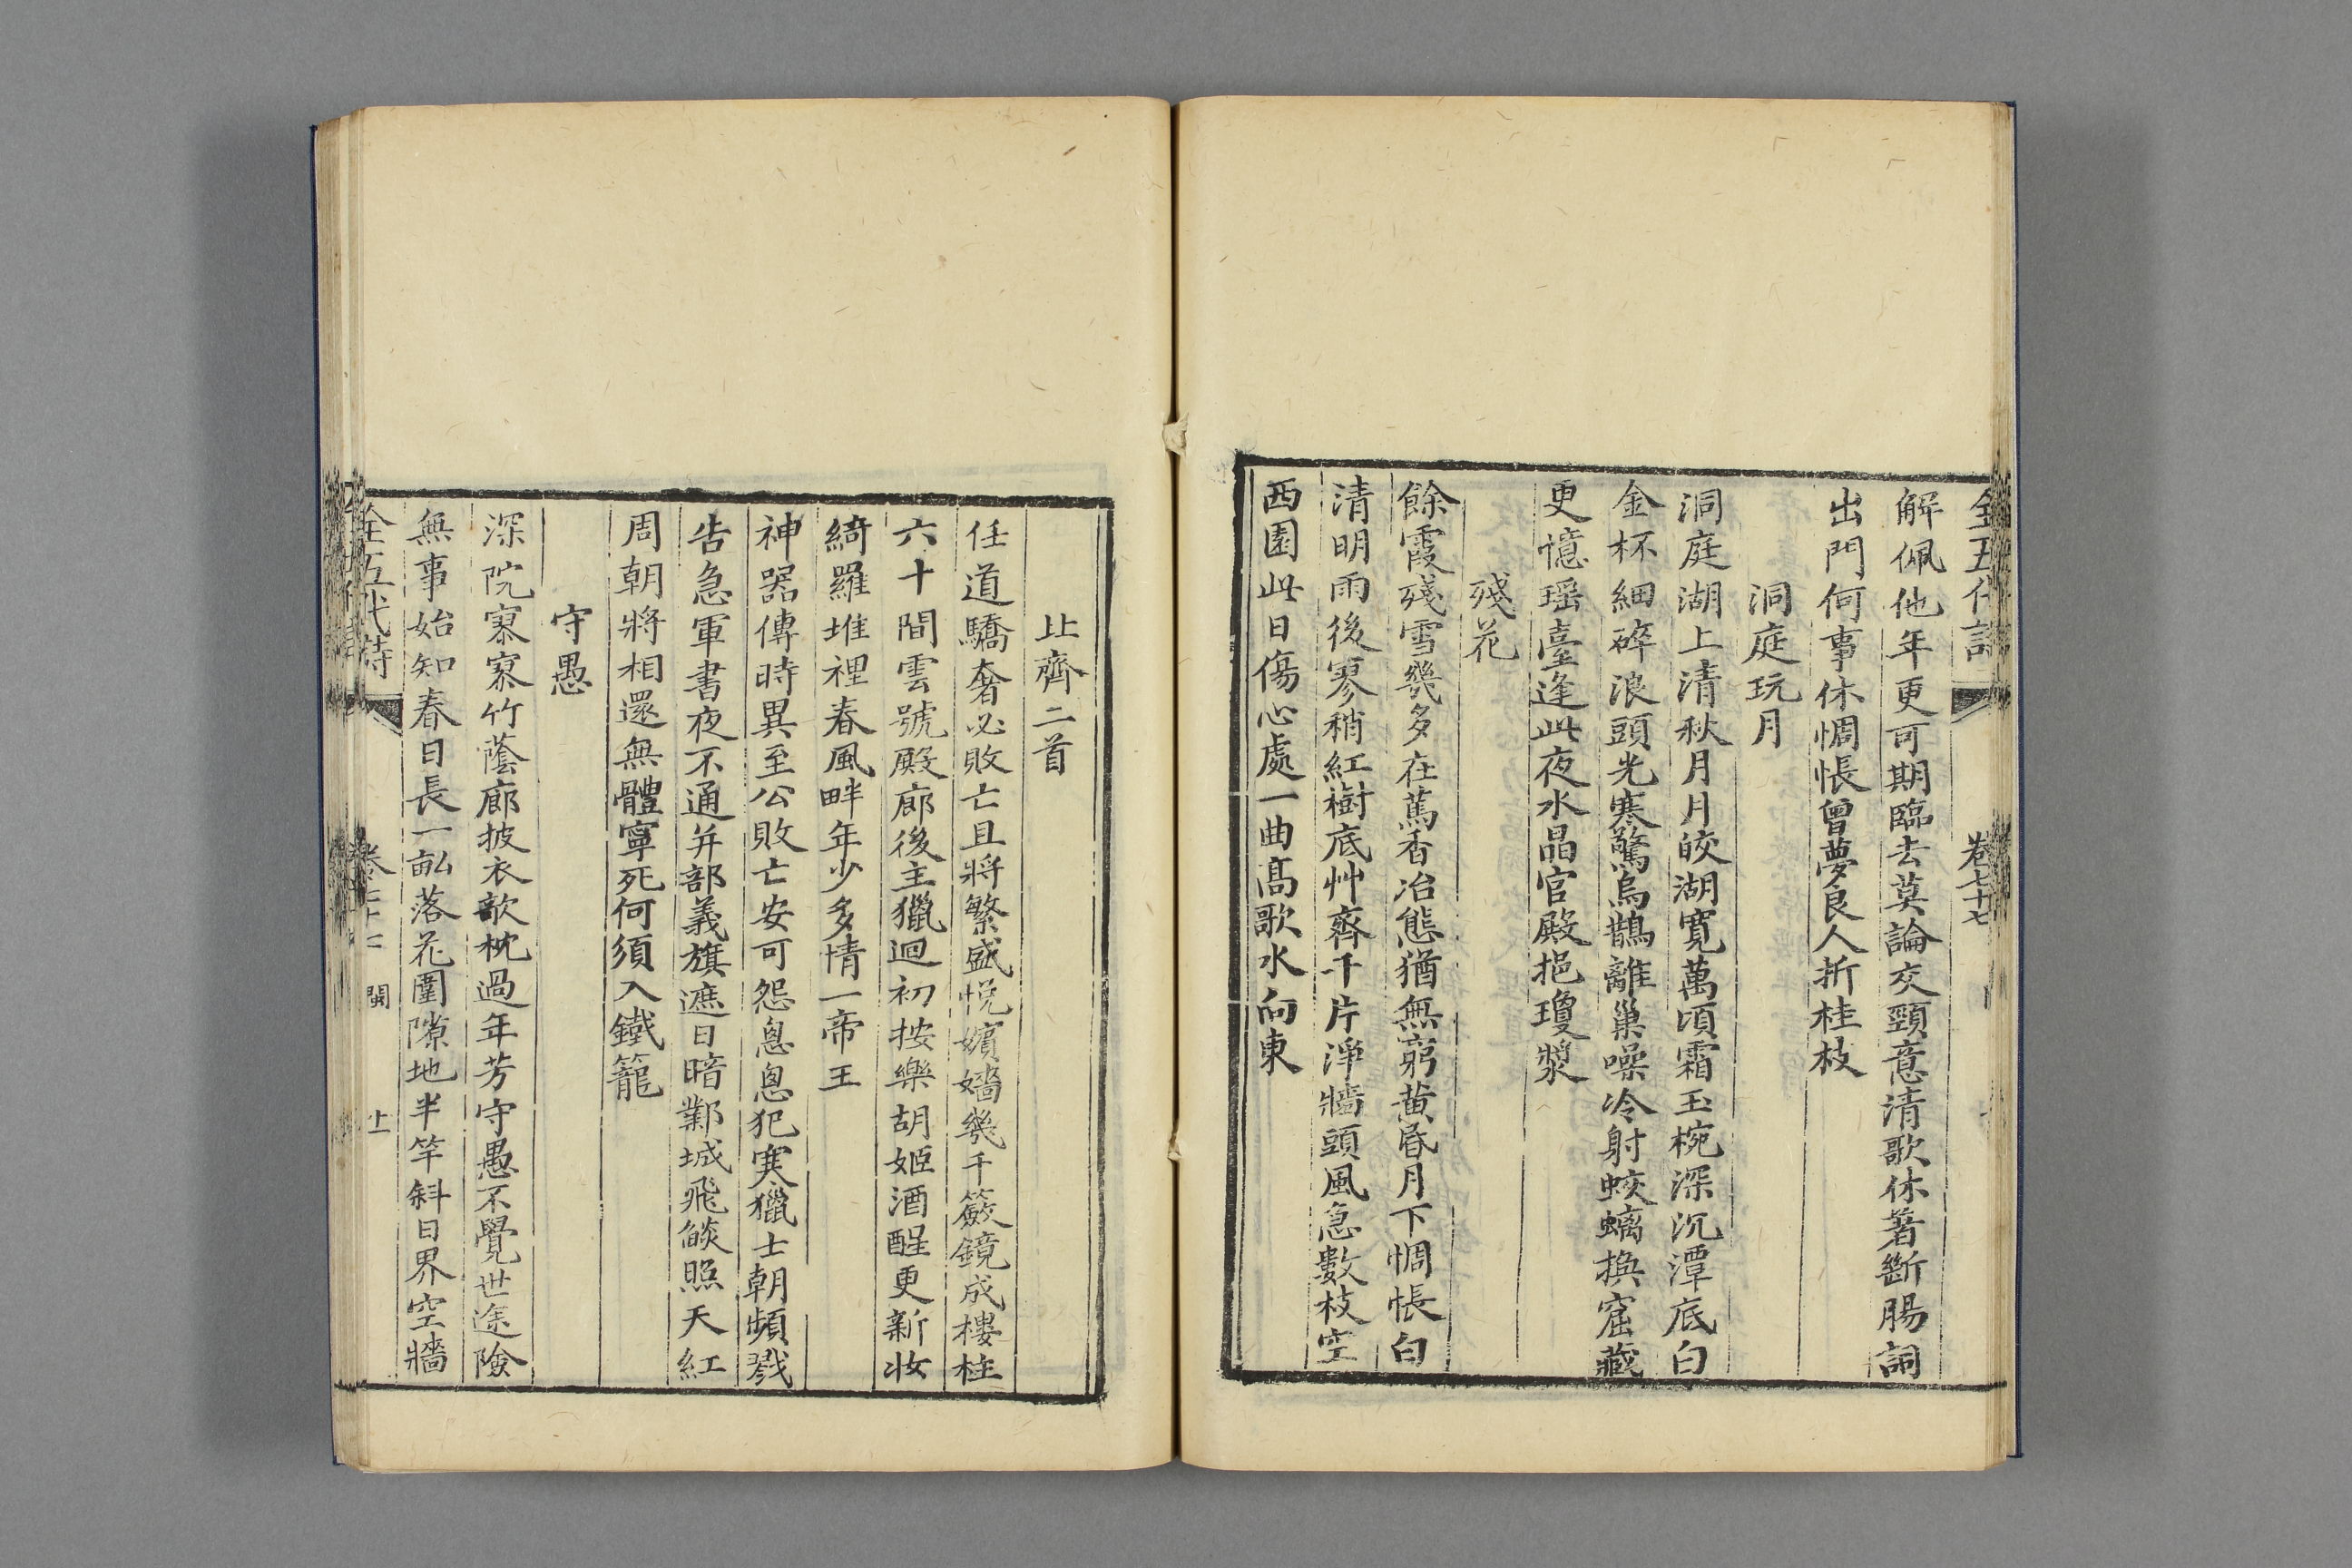 全五代詩 卷七十七
解佩他年更可期臨去莫論交頸意清歌休著斷腸詞
出門何事休惆悵曾夢良人折桂枝
洞庭玩月
洞庭湖上清秋月月皎湖寬萬頃霜玉椀深沉潭底白
金杯細碎浪頭光寒驚烏鵲離巢噪冷射蛟螭換窟藏
更憶瑶臺逢此夜水晶宮殿挹瓊漿
殘花
餘霞殘雪幾多在蔫香冶態猶無窮黄昏月下惆悵白
清明雨後寥稍紅樹底艸齊千片淨牆頭風急數枝空
西園此日傷心處一曲高歌水向東
北齊二首
任道驕奢必敗亡且將繁盛悅嬪嬙幾千奩鏡成樓柱
六十間雲號殿廊後主獵迴初按樂胡姬酒醒更新妝
綺羅堆裡春風畔年少多情一帝王
神器傳時異至公敗亡安可怨悤悤犯寒獵士朝頻戮
告急軍書夜不通并部義旗遮日暗鄴城飛燄照天紅
周朝將相還無體寧死何須入鐵籠
守愚
深院寥寥竹蔭廊披衣欹枕過年芳守愚不覺世途險
無事始知春日長一畝落花圍隙地半竿斜日界空牆
全五代詩 卷七十七 閩 十一